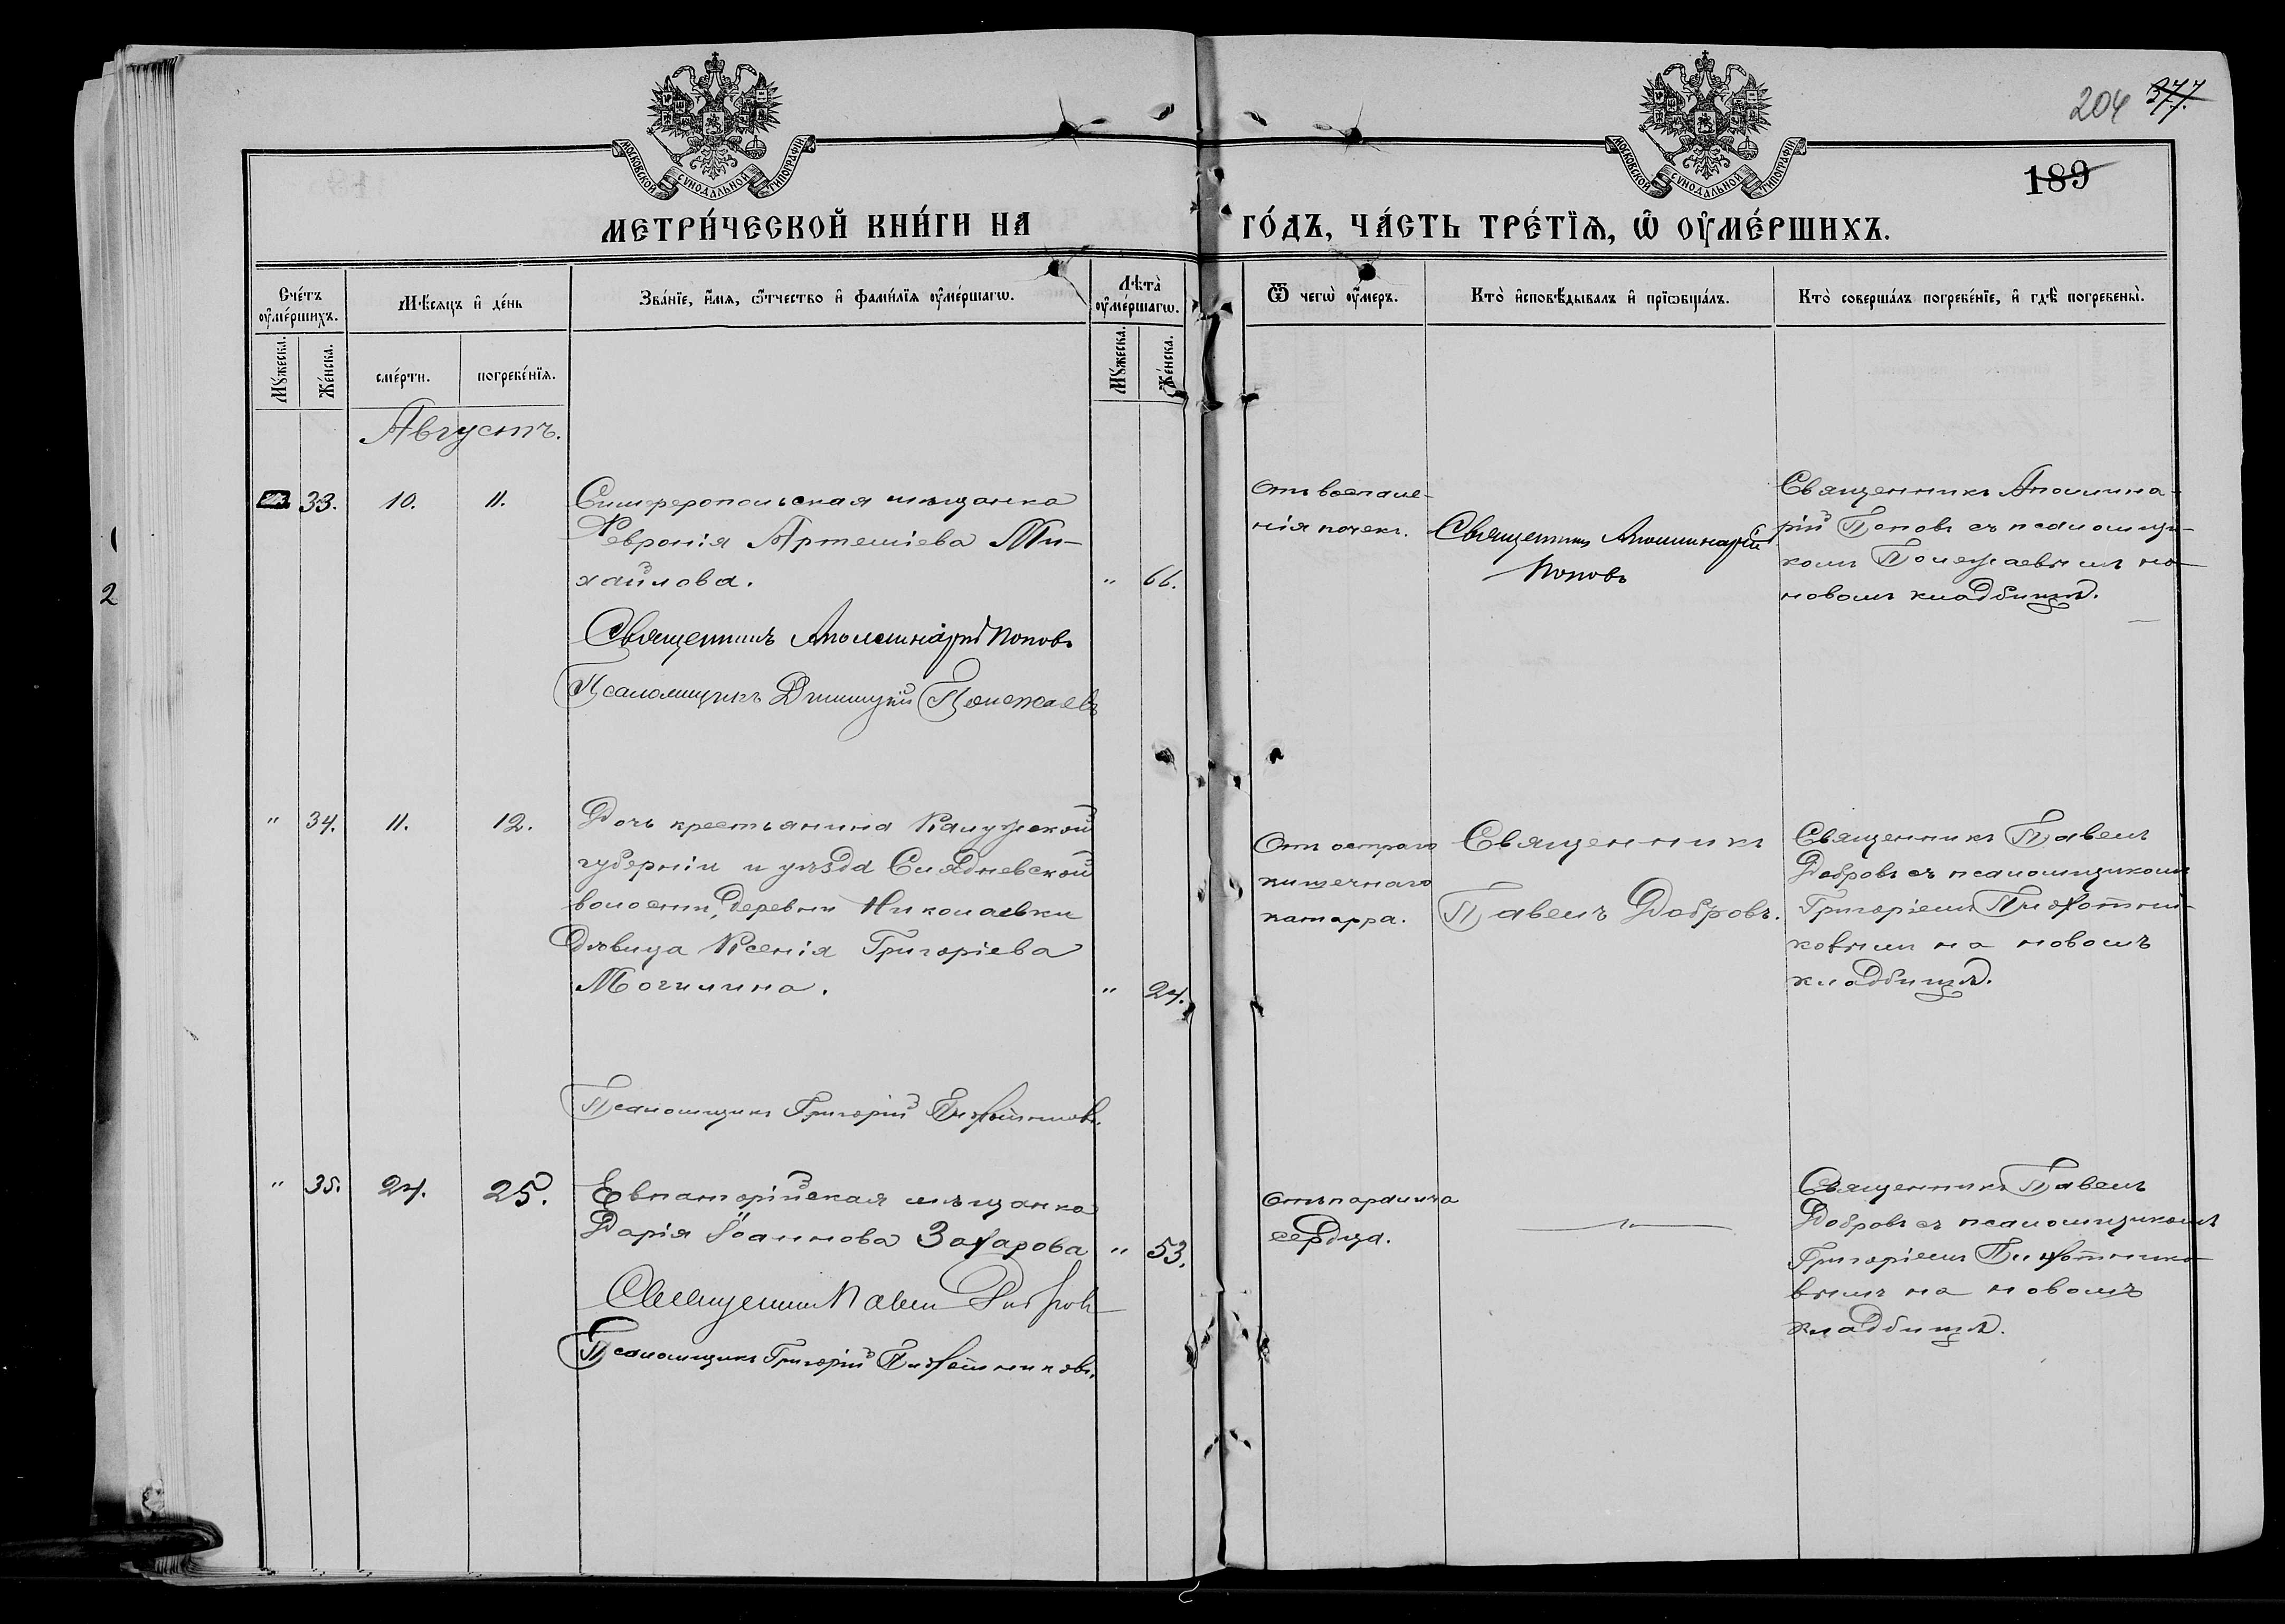 204 377.
189
МОСКОВСКОЙ СѴНОДАЛЬНОЙ ТИПОГРАФІИ
МОСКОВСКОЙ СѴНОДАЛЬНОЙ ТИПОГРАФІИ
МЕТРИ́ЧЕСКОЙ КНИ́ГИ НА ГО́ДЪ, ЧА́СТЬ ТРЕ́ТІѦ, Ѡ҆ ОУ҆МЕ́РШИХЪ.
Сче́тъ оу҆ме́ршихъ.
Мѣ́сѧцъ и҆ де́нь
Зва́нїе, и҆́мѧ, ѻ҆́тчество и҆ фами́лїѧ оу҆ме́ршагѡ.
Лѣта̀ оу҆ме́ршагѡ.
Ѿ чегѡ̀ оу҆́меръ.
Кто̀ и҆сповѣ́дывалъ и҆ прїѡбща́лъ.
Кто̀ соверша́лъ погребе́нїе, и҆ гдѣ̀ погребены̀.
Мꙋ́жеска.
Же́нска.
сме́рти.
погребе́нїѧ.
Мꙋ́жеска.
Же́нска.
Августъ.
33. 10. 11.
Симферопольская мѣщанка
Февронія Артеміева Ми-
хайлова. " 66.
Священникъ Аполлинарій Поповъ
Псаломщикъ Димитрій Полежаевъ
Отъ воспале-
нія почекъ.
Священникъ Аполлинарій
Поповъ
Священникъ Аполлина-
рій Поповъ съ псаломщи-
комъ Полежаевымъ на
новомъ кладбищѣ.
" 34. 11. 12.
Дочь крестьянина Калужской
губерніи и уѣзда Слядневской
волости, деревни Николаевки
дѣвица Ксенія Григоріева
Могилина. " 24.
Псаломщикъ Григорій Пихотниковъ.
Отъ остраго
кишечнаго
катарра.
Священникъ
Павелъ Добровъ.
Священникъ Павелъ
Добровъ съ псаломщикомъ
Григоріемъ Пихотни-
ковымъ на новомъ
кладбищѣ.
" 35. 24. 25.
Евпаторійская мѣщанка
Дарія Іоаннова Захарова " 53.
Священникъ Павелъ Добровъ
Псаломщикъ Григорій Пихотниковъ.
Отъ паралича
сердца.
—"—
Священникъ Павелъ
Добровъ съ псаломщикомъ
Григоріемъ Пихотнико-
вымъ на новомъ
кладбищѣ.
2